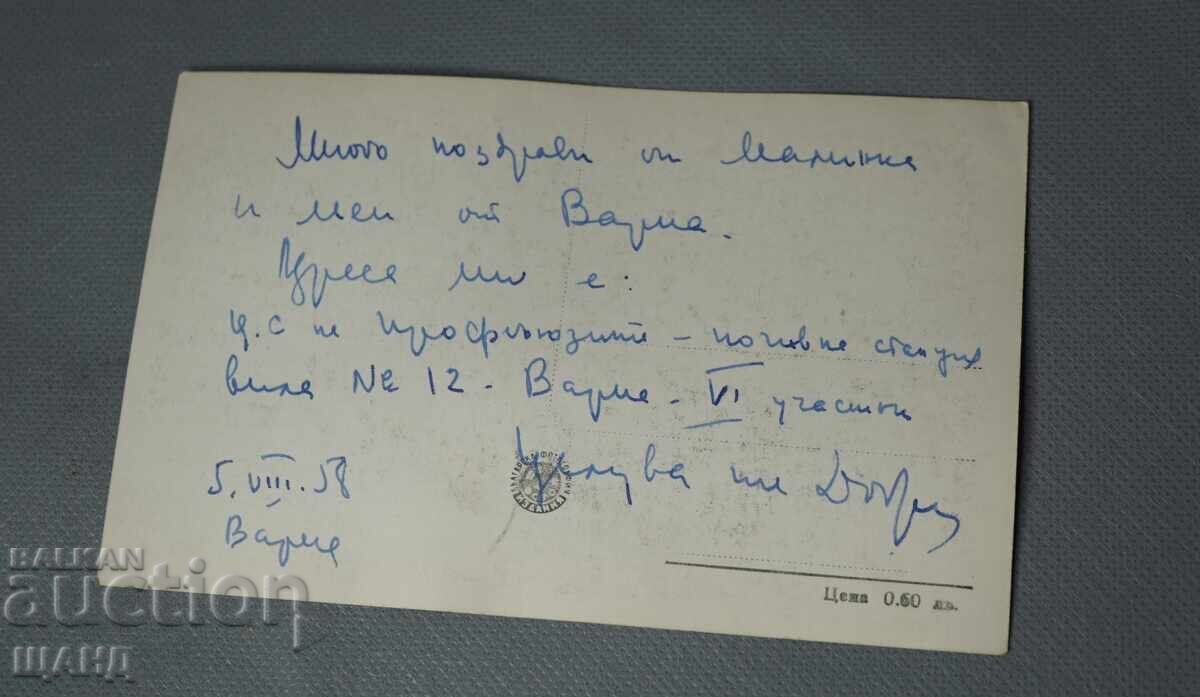 Много поздрави от Малинка
и мен от Варна.
Адреса ми е:
Ц.С на профсъюзите – почивна станция
вила № 12 – Варна – VI участък
Целува те Добри
5.VIII.58
Варна
Цена 0.60 лв.
BALKAN
auction
ШАНД